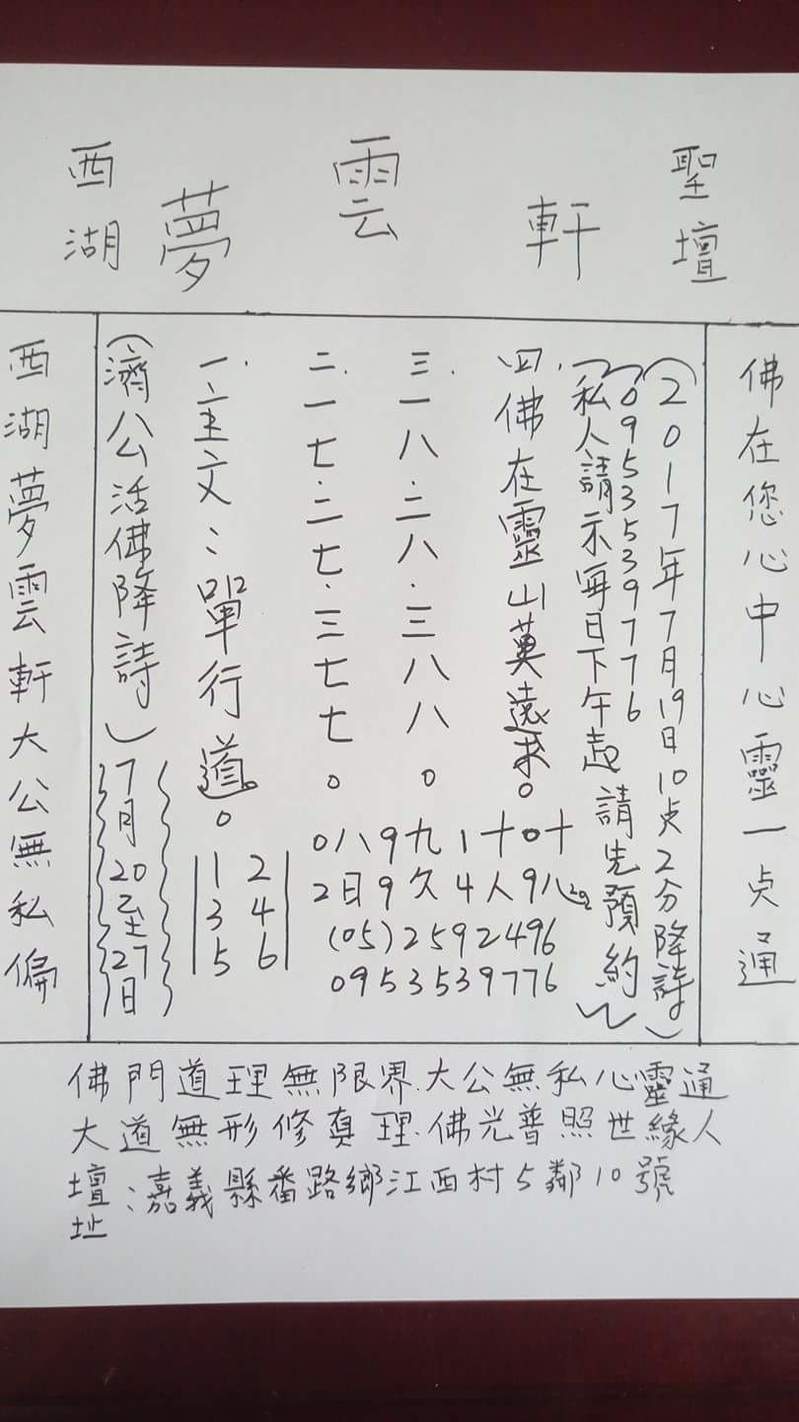 西湖夢雲軒聖壇
佛在您心中心靈一点通
(2017年7月19日10点2分降詩)
(0953539776
(私人請示每日下午起請先預約)
四.佛在靈山莫遠求。
三.一八.二八.三八八。
二.一七.二七.三七七。
一.主文:單行道。
(濟公活佛降詩)7月20至27日
西湖夢雲軒大公無私偏
0八9九1十0十
2日9久4人9心
(05)2592496
0953539776
1 2
3 4
5 6
佛門道理無限界.大公無私心靈通
大道無形修真理.佛光普照世緣人
壇址:嘉義縣番路鄉江西村5鄰10號